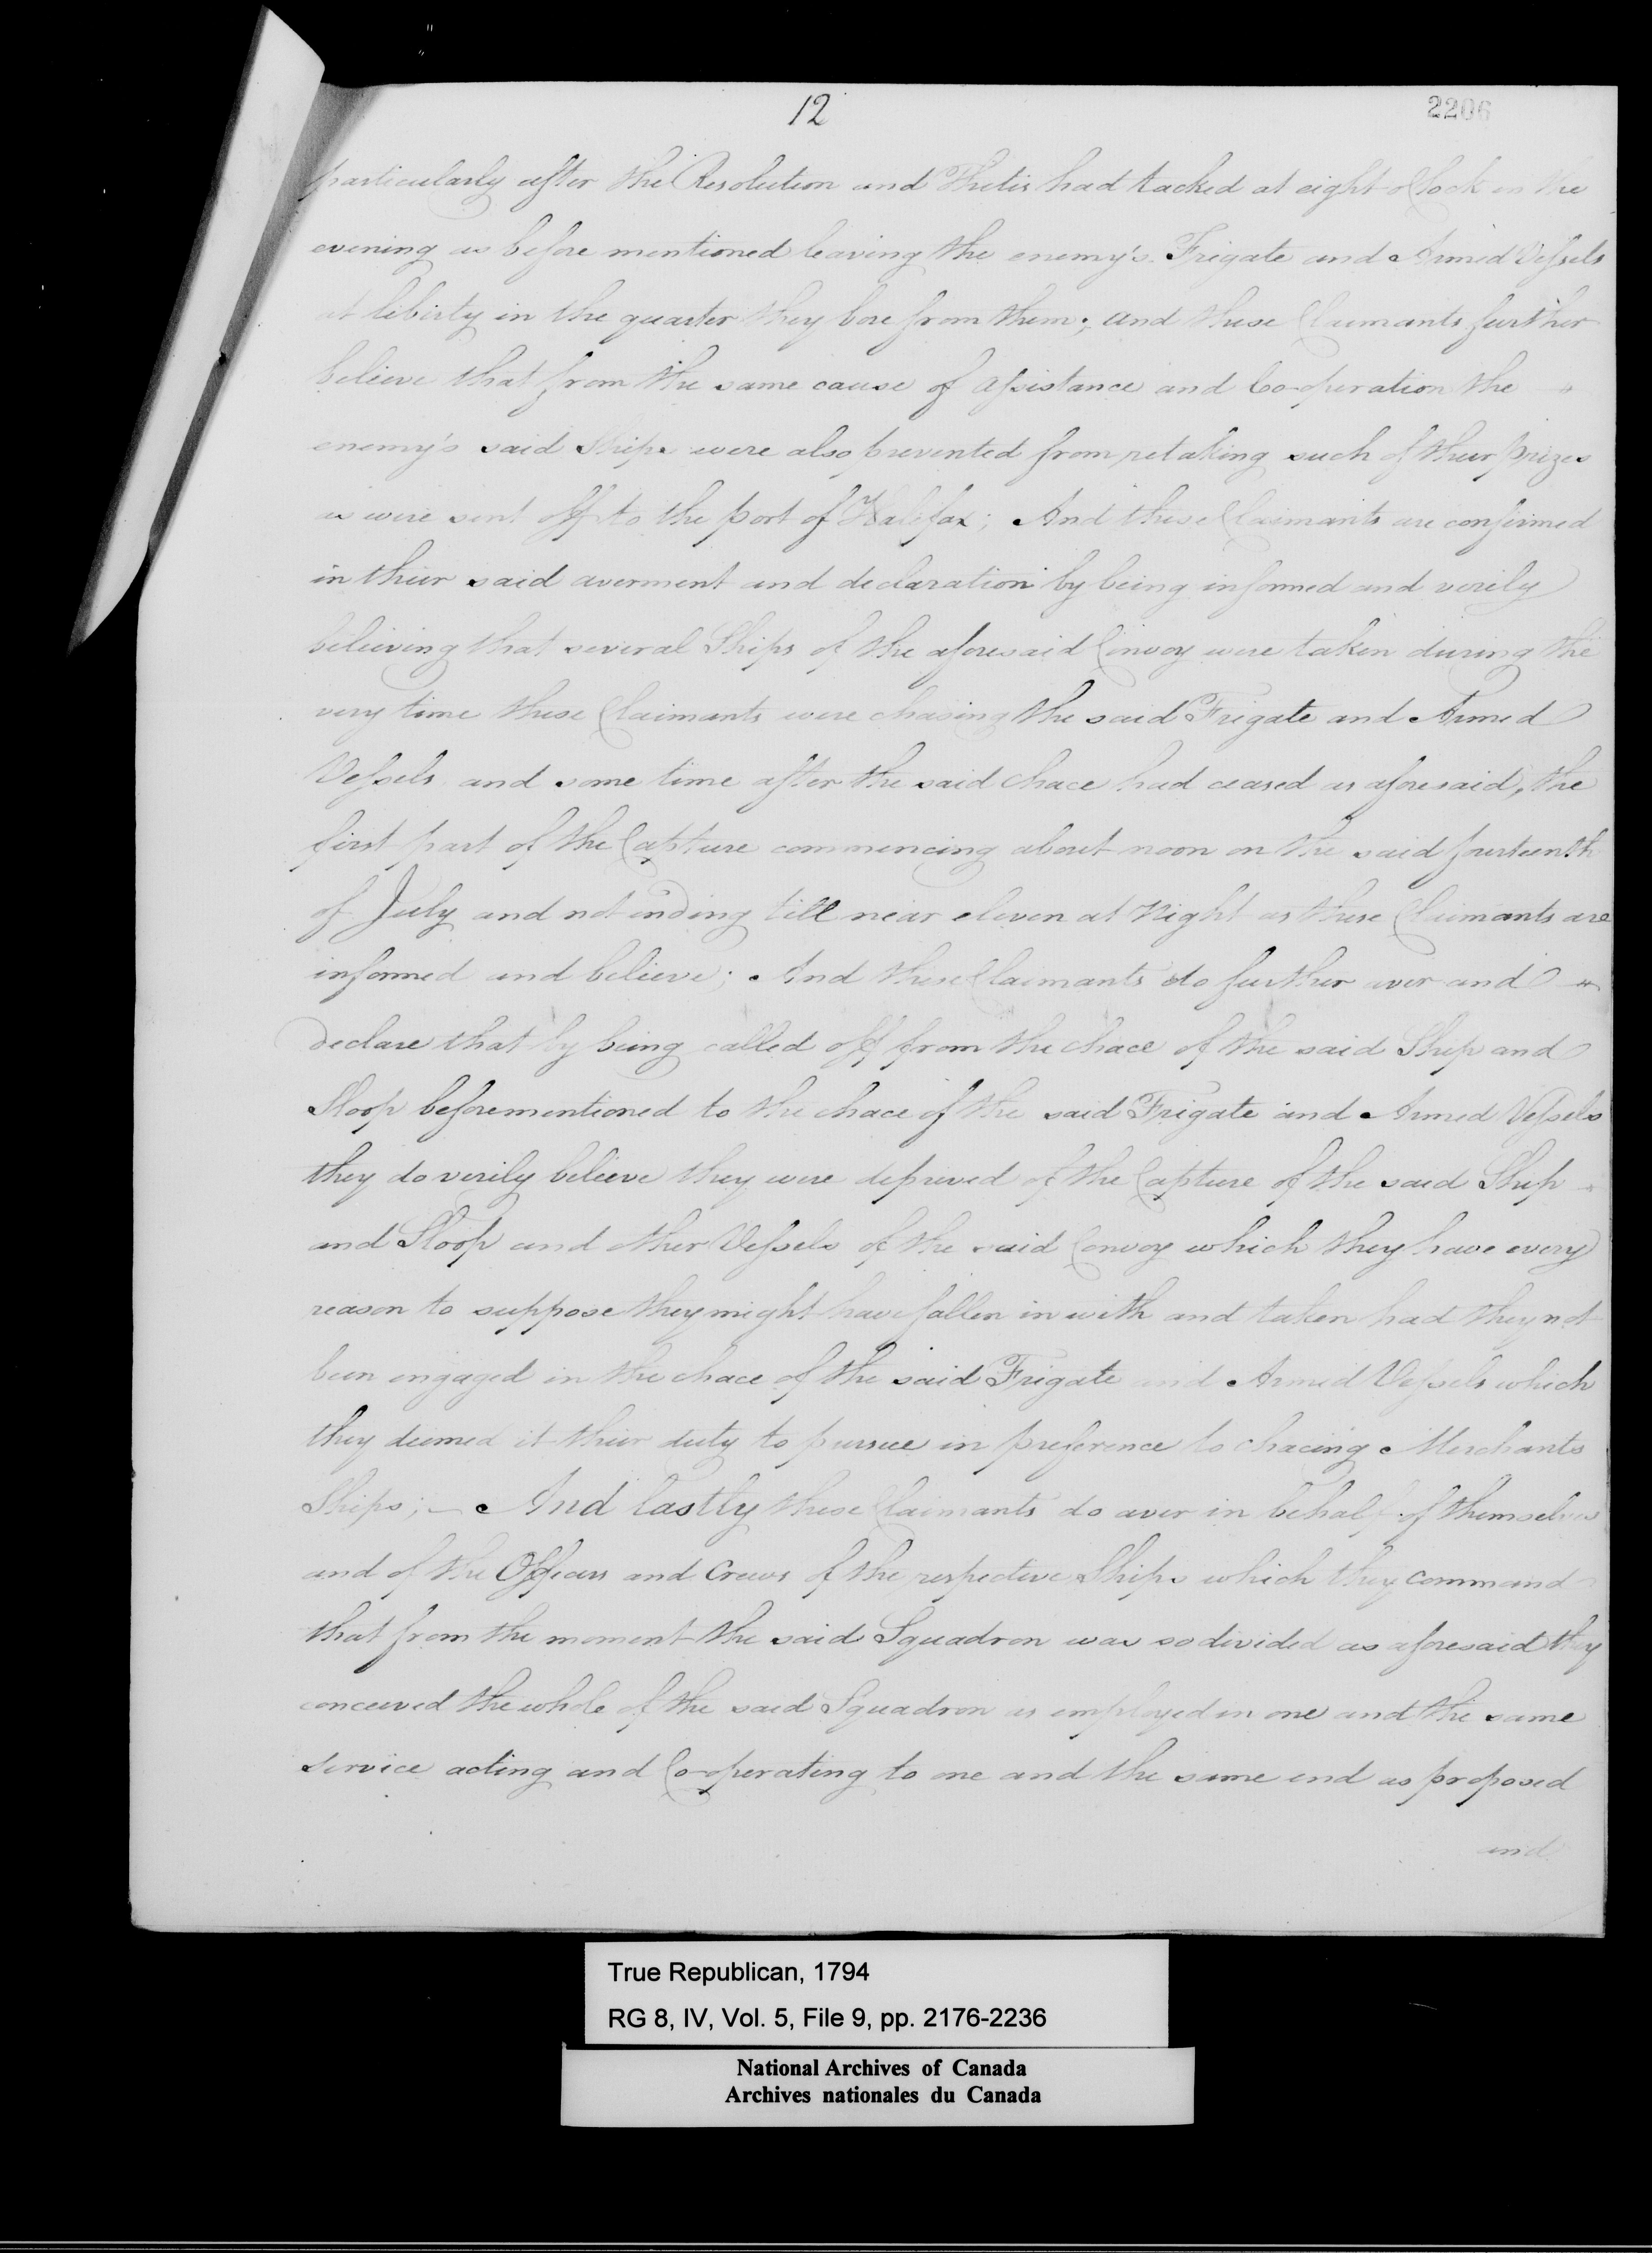 12
2206
particularly after the Resolution and Thetis had tacked at eight o Clock in the
evening as before mentioned leaving the enemy's Frigate and Armed Vessels
at liberty in the quarter they bore from them; and these Claimants further
believe that from the same cause of assistance and Co-operation the
enemy's said Ships were also prevented from retaking such of their prizes
as were sent off to the port of Halifax; And these Claimants are confirmed
in their said averment and declaration by being informed and verily
believing that several Ships of the aforesaid Convoy were taken during the
very time these Claimants were chasing the said Frigate and Armed
Vessels and some time after the said Chace had ceased as aforesaid, the
first part of the Capture commencing about noon on the said fourteenth
of July and not ending till near eleven at Night as these Claimants are
informed and believe; And these Claimants do further aver and
declare that by being called off from the chace of the said Ship and
Sloop beforementioned to the chace of the said Frigate and Armed Vessels
they do verily believe they were deprived of the Capture of the said Ship
and Sloop and other Vessels of the said Convoy which they have every
reason to suppose they might have fallen in with and taken had they not
been engaged in the chace of the said Frigate and Armed Vessels which
they deemed it their duty to pursue in preference to chacing Merchants
Ships; — And lastly these Claimants do aver in behalf of themselves
and of the Officers and Crews of the respective Ships which they command
that from the moment the said Squadron was so divided as aforesaid they
conceived the whole of the said Squadron as employed in one and the same
service acting and Co-operating to one and the same end as proposed
and
True Republican, 1794
RG 8, IV, Vol. 5, File 9, pp. 2176-2236
National Archives of Canada
Archives nationales du Canada